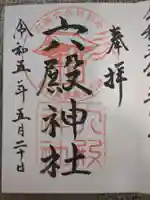 奉拝
六殿神社
令和五年五月二十日